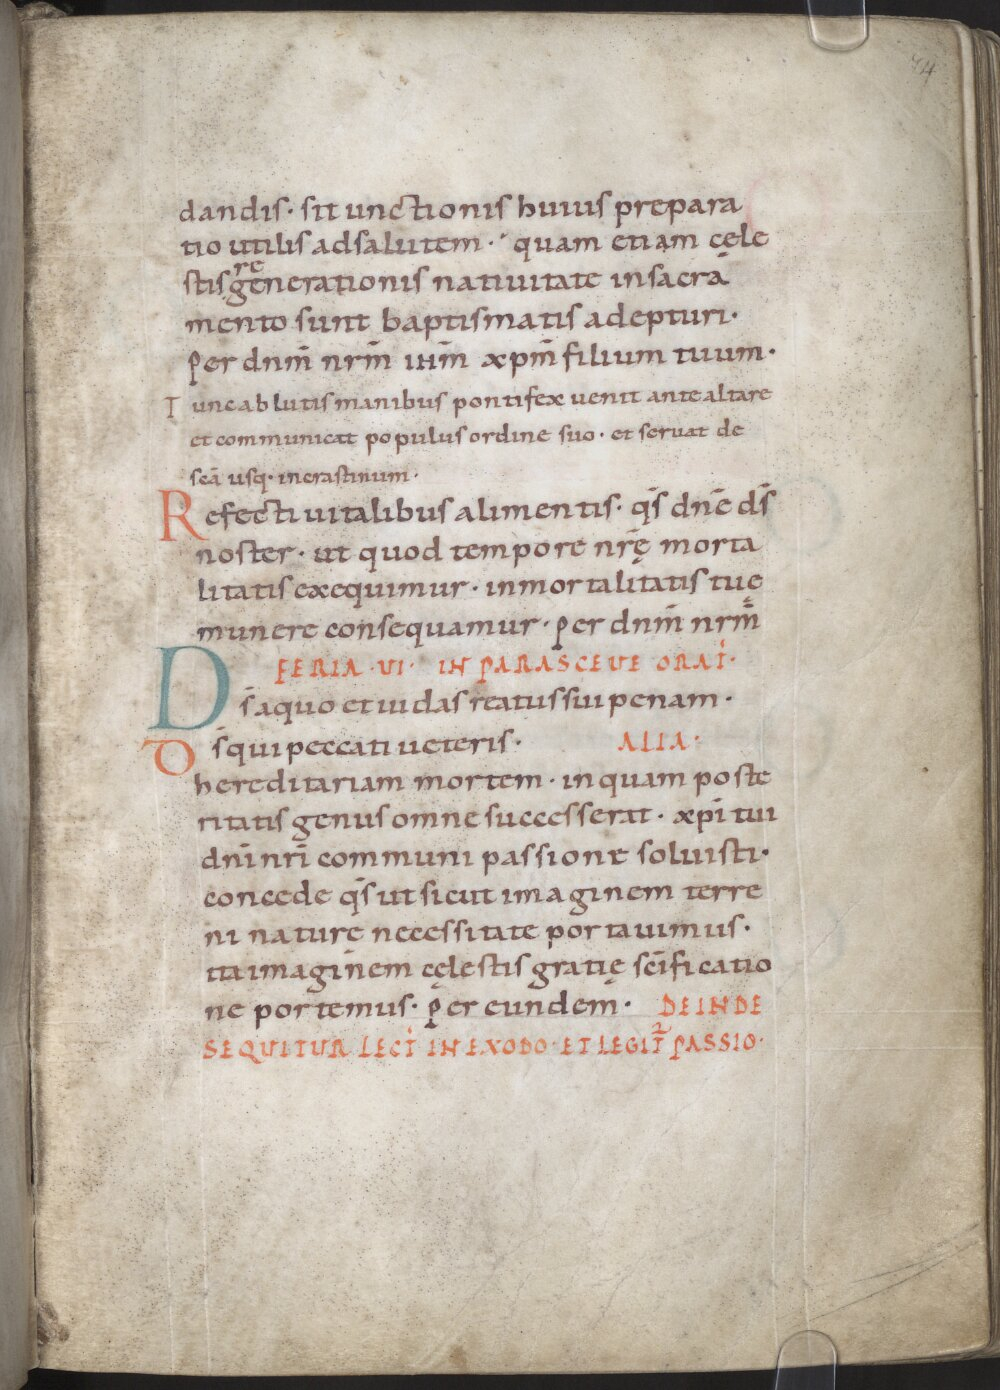 74
dandis · sit unctionis huius prepara
tio utilis adsalutem · quam etiam cęle
stis regenerationis natiuitate insacrā
mento sunt baptismatis adepturi ·
Per dnm̄ nrm̄ ihm̄ xpm̄ filium tuum ·
Tunc ablutis manibus pontifex uenit ante altare
et communicat populus ordine suo · et seruat de
scā usq· incrastinum ·
Refecti uitalibus alimentis · qs̄ dnē ds̄
noster · ut quod tempore nrę̄ morta
litatis exequimur · inmortalitatis tuę
munere consequamur · per dnm̄ nrm̄
FERIA · VI · IN PARASCEUE ORAT̄ ·
Ds̄ aquo et iudas reatus sui penam ·
Ds̄ qui peccati ueteris · ALIA ·
hereditariam mortem · in quam poste
ritatis genus omne successerat · xpī tui
dnī nrī communi passione soluisti ·
concede qs̄ ut sicut imaginem terre
ni nature necessitate portauimus ·
ita imaginem cęlestis gratię scīficatio
ne portemus · per eundem · DEINDE
SEQUITUR LECT̄ IN EXODO · ET LEGIT̄ PASSIO ·